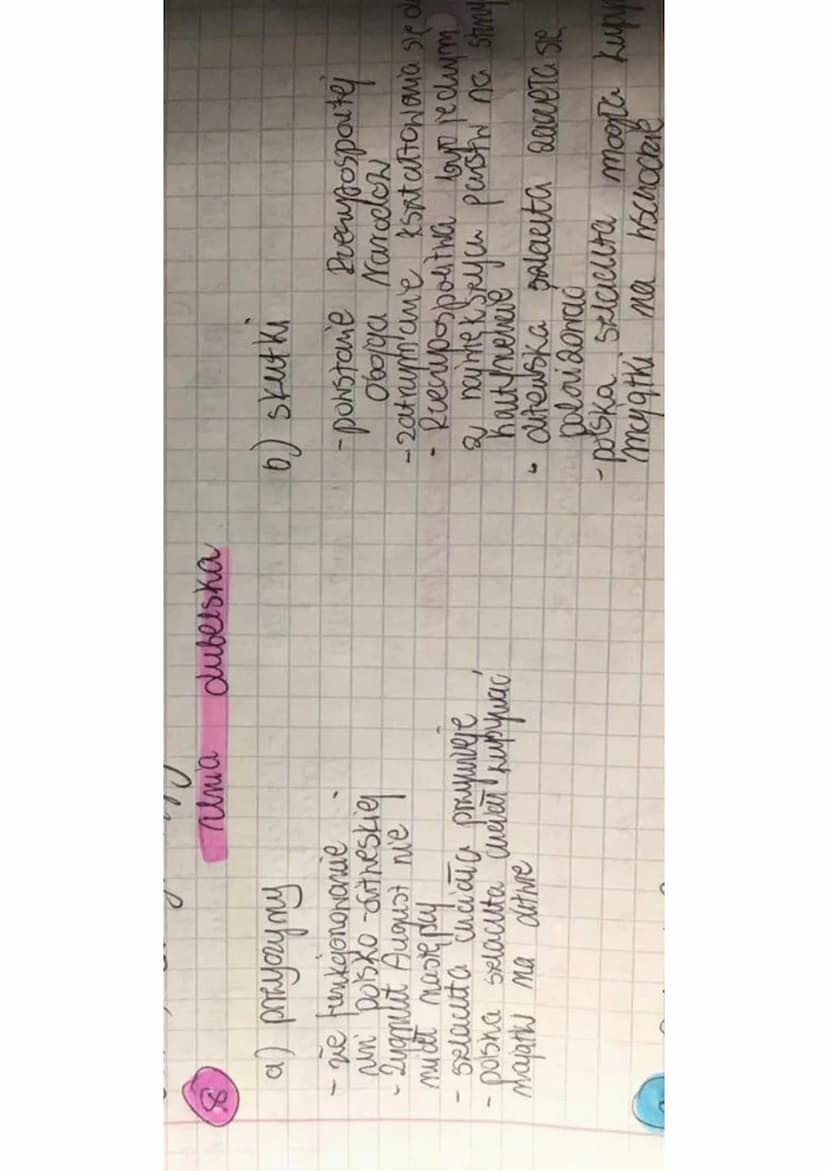 8
Unia Lubelska
a) przyczyny
- złe funkcjonowanie
unii polsko-litewskiej
- Zygmunt August nie
miał następcy
- szlachta chciała przywileje
- polska szlachta chciała kupywać
majątki na Litwie
b) skutki
- powstanie Rzeczypospolitej
Obojga Narodów
- zatrzymanie kształtowania się
- Rzeczpospolita był jednym
z największych państw na
kontynencie
- Litewska szlachta zaczęła się
polonizować
- polska szlachta mogła
majątki na wschodzie